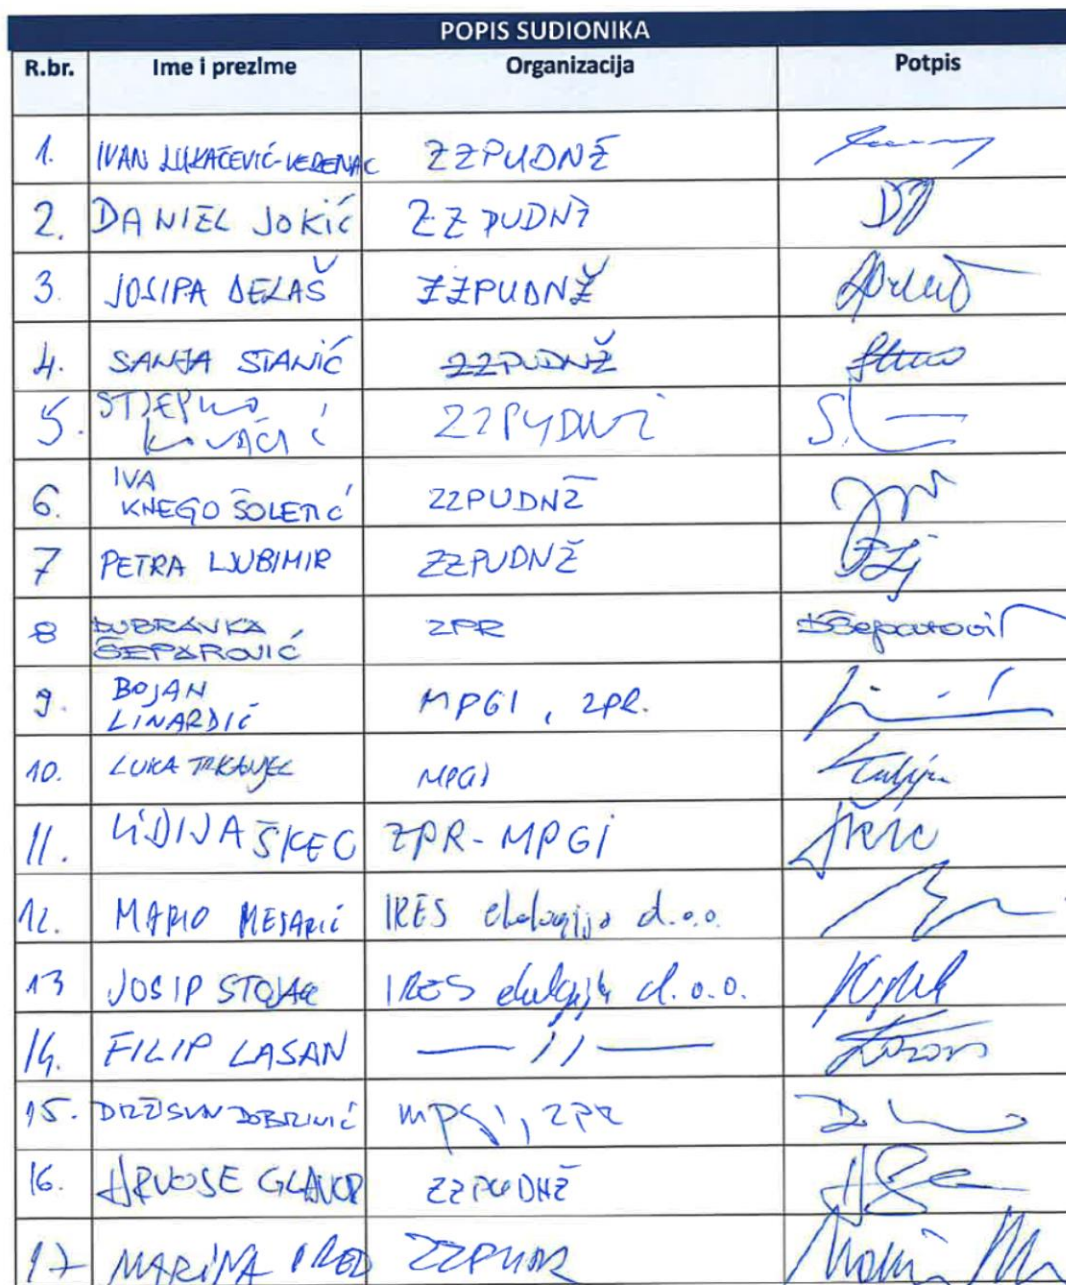 POPIS SUDIONIKA
R.br. Ime i prezime Organizacija Potpis
1. IVAN LUKAČEVIĆ-VEDENAC ZZPUDNŽ
2. DANIEL JOKIĆ ZZPUDNŽ
3. JOSIPA DELAŠ ZZPUDNŽ
4. SANJA STANIĆ ZZPUDNŽ
5. STJEPKO
KOVAČIĆ ZZPUDNŽ
6. IVA
KNEGO ŠOLETIĆ ZZPUDNŽ
7 PETRA LJUBIMIR ZZPUDNŽ
8 DUBRAVKA
ŠEPAROVIĆ ZPR DŠeparović
9. BOJAN
LINARDIĆ MPGI, ZPR.
10. LUKA TRKANJEC MPGI
11. LIDIJA ŠKEC ZPR-MPGI
12. MARIO MESARIĆ IRES ekologija d.o.o.
13 JOSIP STOJAK IRES ekologija d.o.o.
14. FILIP LASAN — // —
15. DRŽISLAV DOBRINIĆ MPGI, ZPR
16. HRVOJE GLAVOR ZZPUDNŽ
17 MARINA